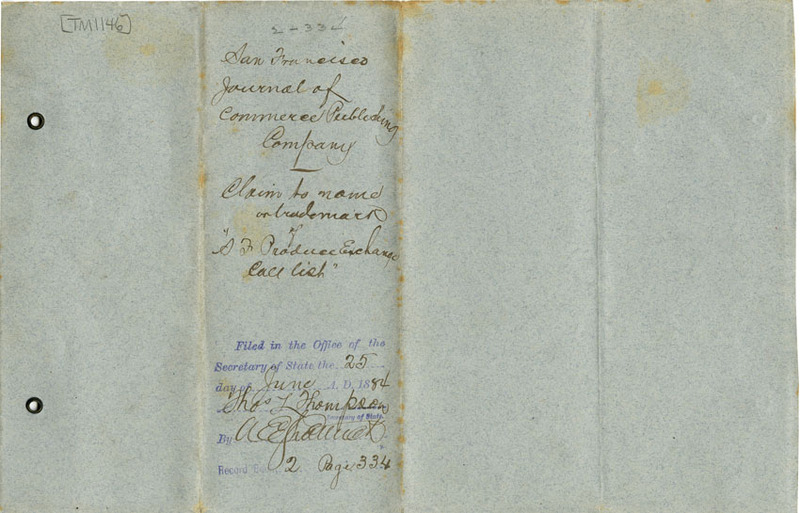 [TM1146]
2-334
San Francisco
Journal of
Commerce Publishing
Company
Claim to name
or trademark
of
"S F Produce Exchange
Call list"
Filed in the Office of the
Secretary of State the 25
day of June A. D. 1884
Thos L Thompson
Secretary of State.
By
Record Book 2 Page 334